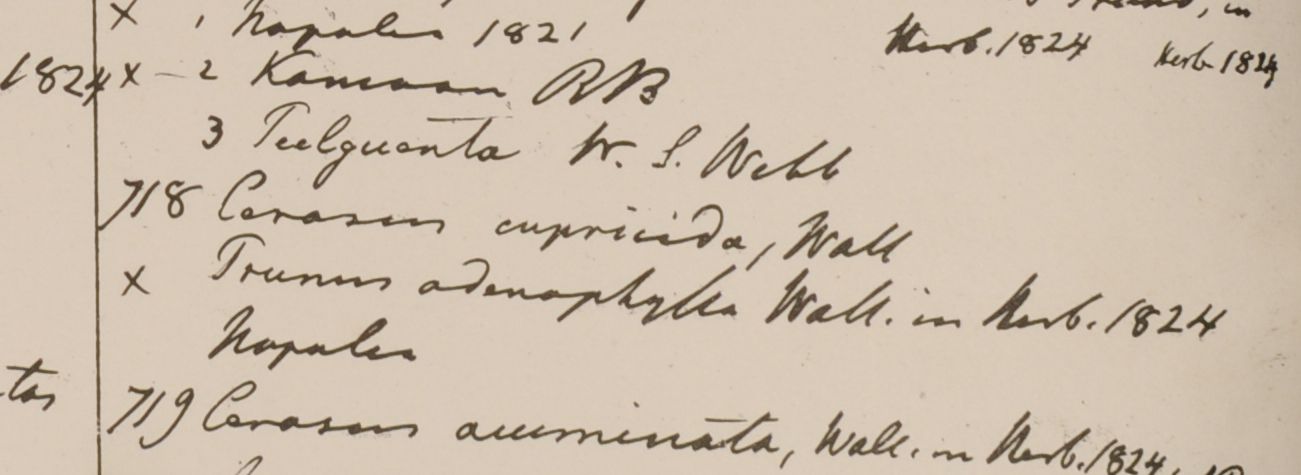 in
x 1 Napalia 1821 Herb. 1824 Herb. 1824
1824 x - 2 Kamaon RB
3 Teelguanta W. S. Webb
718 Cerasus cupricida, Wall
x Prunus adenophylla Wall. in Herb. 1824
Napalia
tas
719 Cerasus acuminata, Wall. in Herb. 1824